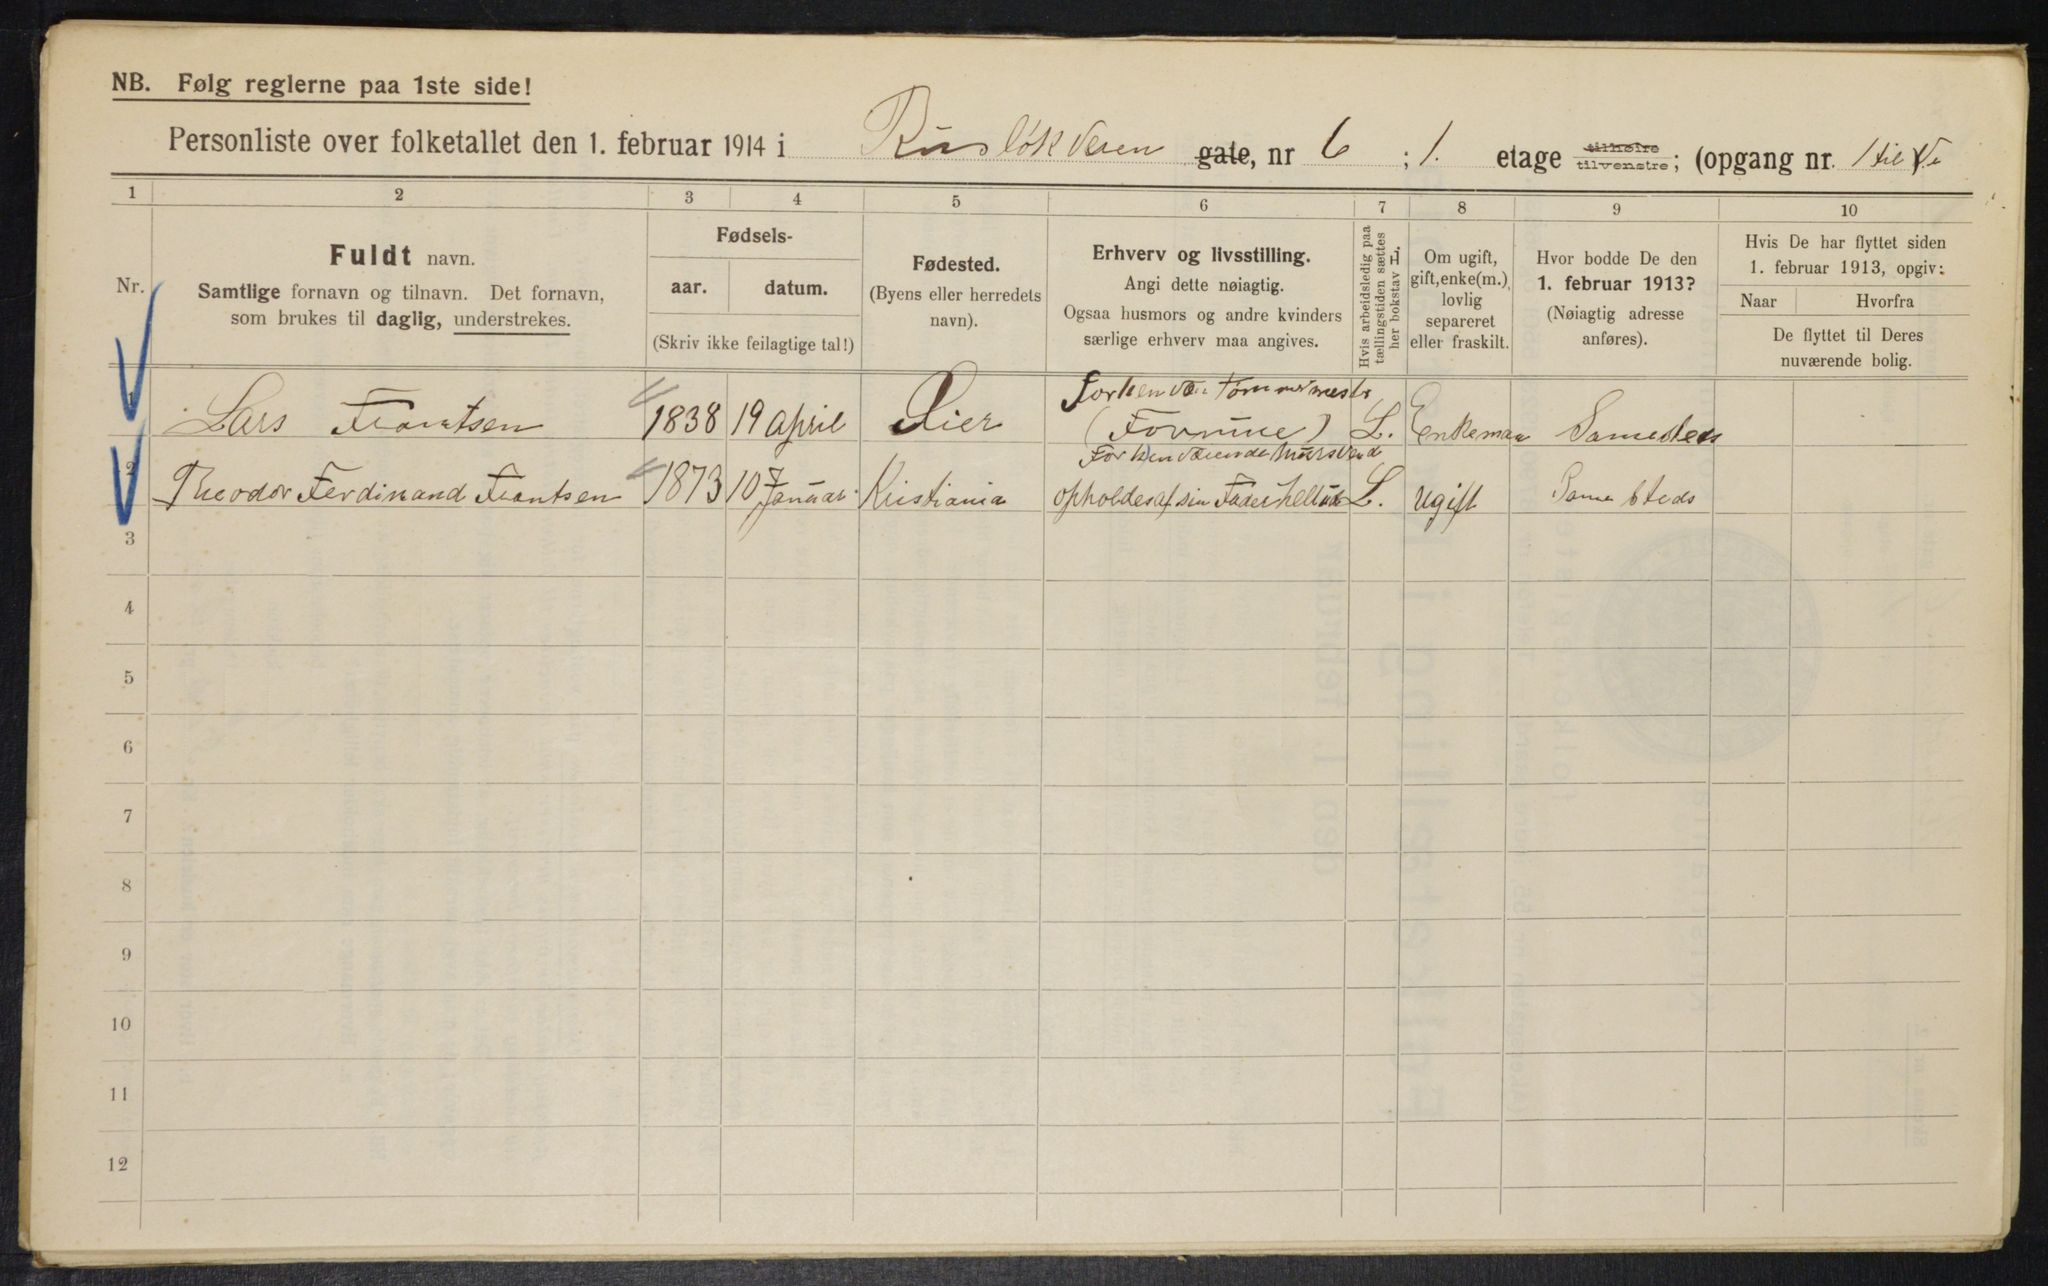 NB. Følg reglerne paa 1ste side!
Personliste over folketallet den 1. februar 1914 i Rusløkveien gate, nr 6 ; 1. etage tilhøire tilvenstre; (opgang nr. 1 til V
1 2 3 4 5 6 7 8 9 10
Nr.
Fuldt navn.
Samtlige fornavn og tilnavn. Det fornavn,
som brukes til daglig, understrekes.
Fødsels-
aar. datum.
(Skriv ikke feilagtige tal!)
Fødested.
(Byens eller herredets
navn).
Erhverv og livsstilling.
Angi dette nøiagtig.
Ogsaa husmors og andre kvinders
særlige erhverv maa angives.
Hvis arbeidsledig paa
tællingstiden sættes
her bokstav L.
Om ugift,
gift, enke(m.),
lovlig
separeret
eller fraskilt.
Hvor bodde De den
1. februar 1913?
(Nøiagtig adresse
anføres).
Hvis De har flyttet siden
1. februar 1913, opgiv:
Naar Hvorfra
De flyttet til Deres
nuværende bolig.
1 Lars Frantsen 1838 19 April
Tømmermester
(Formue) L. Enkeman Samesteds
2 Theodor Ferdinand Frantsen 1873 10 Januar Kristiania
opholdes af sin Fader L. Ugift Samesteds
3
4
5
6
7
8
9
10
11
12